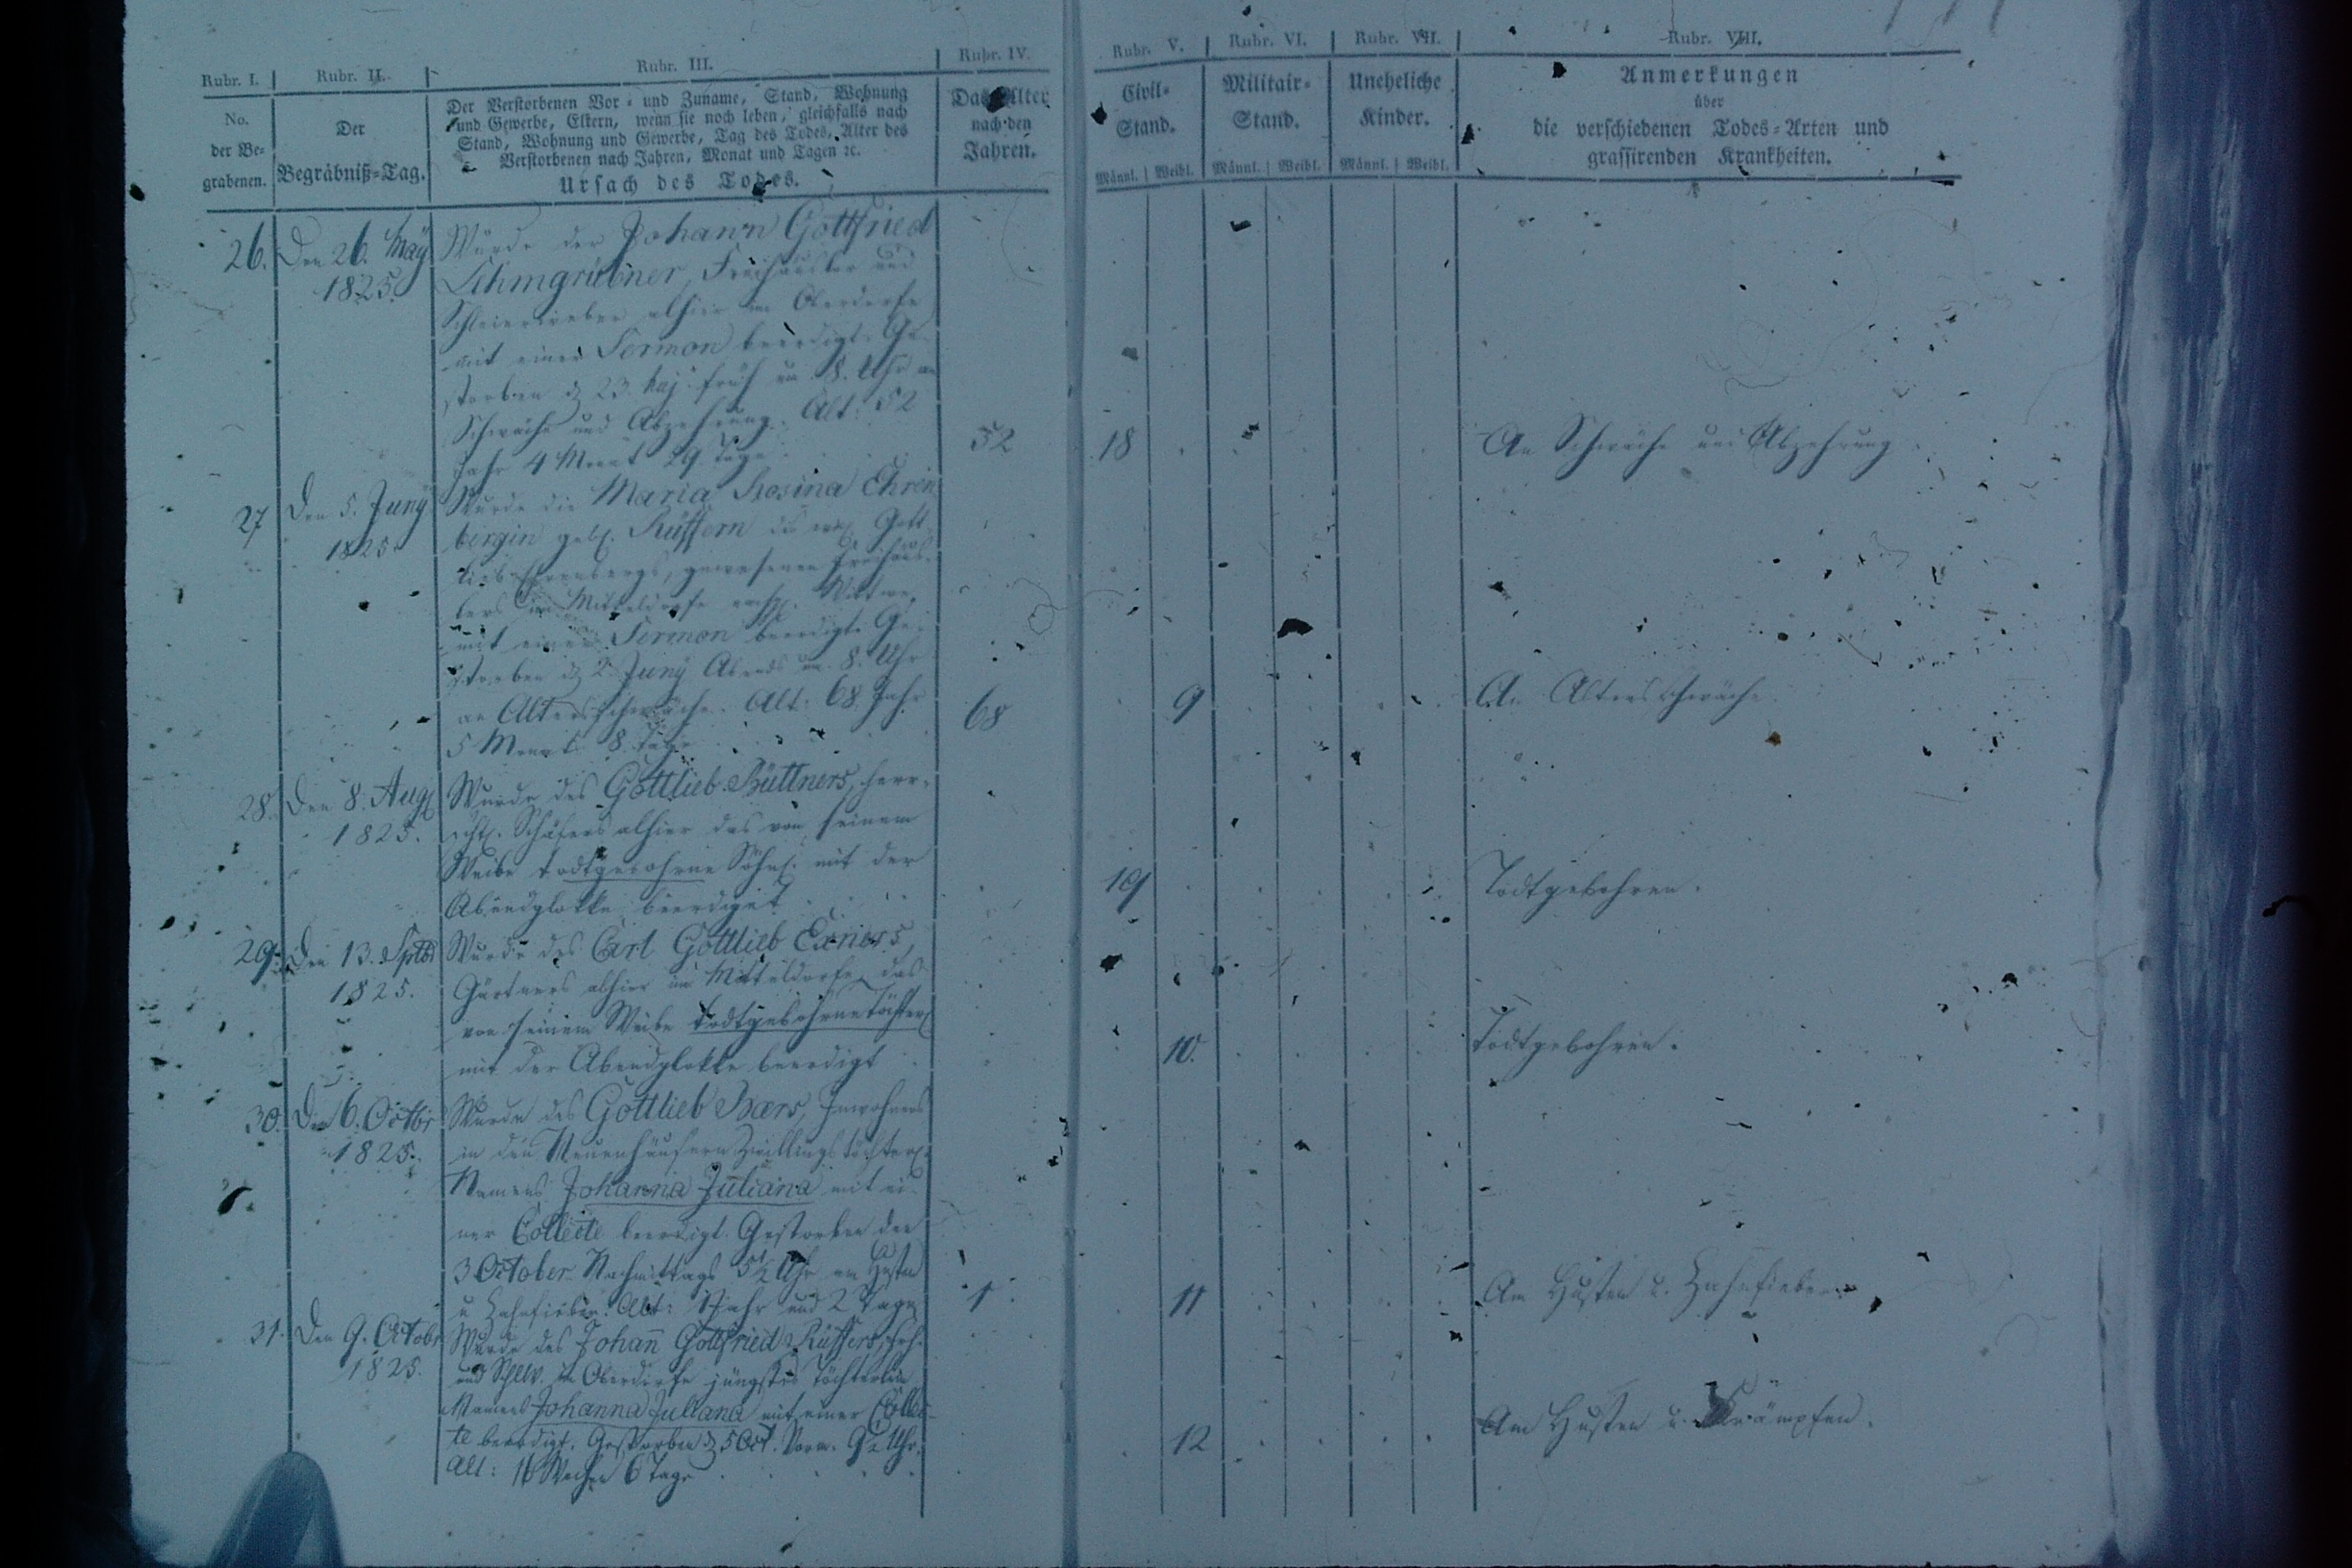 Rubr. I. Rubr. II. Rubr. III. Rubr. IV. Rubr. V. Rubr. VI. Rubr. VII. Rubr. VIII.
No.
der Be-
grabenen.
Der
Begräbniß-Tag.
Der Verstorbenen Vor- und Zuname, Stand, Wohnung
und Gewerbe, Eltern, wenn sie noch leben, gleichfalls nach
Stand, Wohnung und Gewerbe, Tag des Todes, Alter des
Verstorbenen nach Jahren, Monat und Tagen ꝛc.
Ursach des Todes.
Das Alter
nach den
Jahren.
Civil-
Stand.
Männl. Weibl.
Militair-
Stand.
Männl. Weibl.
Uneheliche
Kinder.
Männl. Weibl.
Anmerkungen
über
die verschiedenen Todes-Arten und
grassirenden Krankheiten.
26. Den 26. May
1825.
Wurde der Johann Gottfried
Lehmgrübner, Freihäusler und
Schleierweber alhier im Oberdorfe
mit einer Sermon beerdigt. Ge-
storben d. 23. Maj. früh um 8. Uhr an
Schwäche und Abzehrung. Alt: 52
Jahr 4 Monat 29. Tage
52 18 An Schwäche und Abzehrung
27 Den 5. Juny
1825.
Wurde die Maria Rosina Ehren
bergin geb. Rüffern des Gott-
lieb Ehrenbergs, gewesenen Freihäus-
lers im Mitteldorfe Wittwe,
mit einer Sermon beerdigt. Ge-
storben d. 2. Juny Abends um 8. Uhr
an Altersschwäche. Alt: 68 Jahr
5 Monat 8. Tage
68 9 An Altersschwäche
28. Den 8. Aug
1825.
Wurde des Gottlieb Büttners, herr-
schtl. Schäfers alhier das von seinem
Weibe todtgebohrne Söhnl. mit der
Abendglokke beerdiget
19 Todtgebohren.
29. Den 13. Sptb
1825.
Wurde des Carl Gottlieb Exners,
Gärtners alhier im Mitteldorfe, das
von seinem Weibe todtgebohrne Töchterl
mit der Abendglokke beerdigt
10. Todtgebohren.
30. Den 6. Octbr
1825.
Wurde des Gottlieb Baers, Inwohners
in den Neuenhäusern Zwillingstöchterl.
Namens Johanna Juliana mit ei-
ner Collecte beerdigt. Gestorben den
3 October Nachmittags 5½ Uhr am Husten
u. Zahnfieber. Alt: 1 Jahr und 2 Tage
1 11 Am Husten u. Zahnfieber
31. Den 9. Octobr
1825.
Wurde des Johann Gottfried Rüffers, Frh.
und Schlw. im Oberdorfe jüngstes Töchterlein
Namens Johanna Juliana mit einer Collec-
te beerdigt. Gestorben d. 5 Oct. Vorm. 9½ Uhr.
Alt: 16 Wochen 6 Tage
12 Am Husten u. Krämpfen.